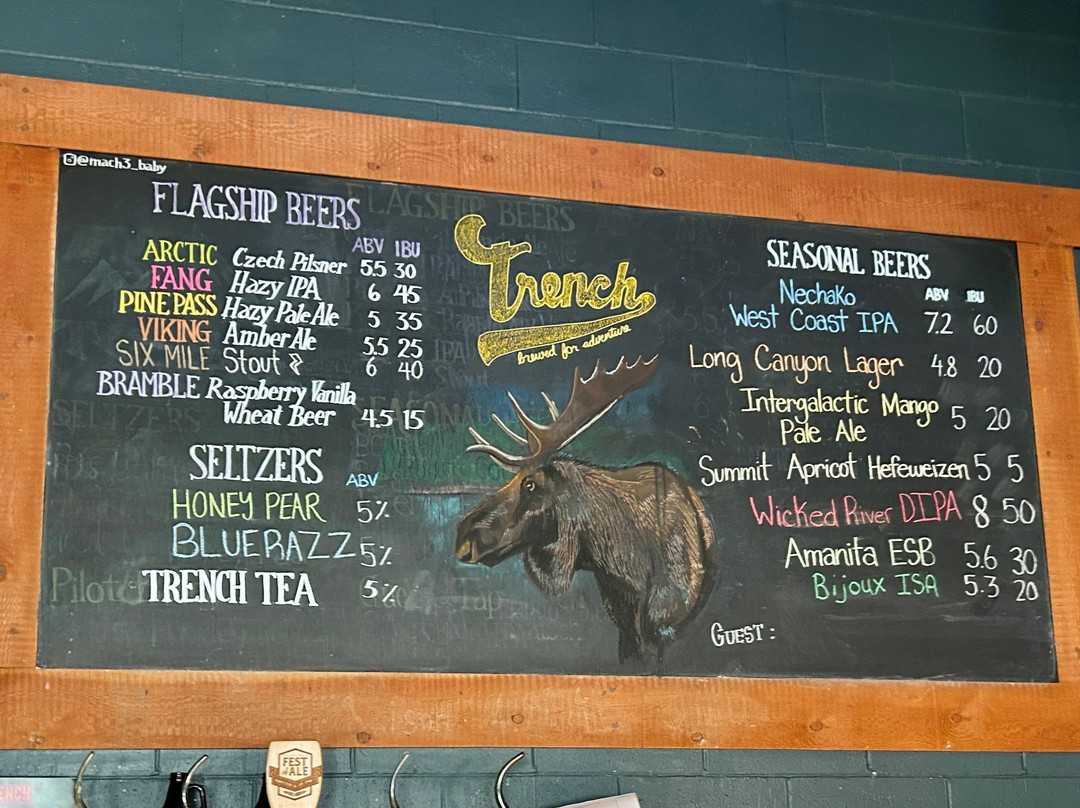 @mach3_baby
FLAGSHIP BEERS
ABV IBU
ARCTIC Czech Pilsner 5.5 30
FANG Hazy IPA 6 45
PINE PASS Hazy Pale Ale 5 35
VIKING Amber Ale 5.5 25
SIX MILE Stout 6 40
BRAMBLE Raspberry Vanilla
Wheat Beer 4.5 15
SELTZERS ABV
HONEY PEAR 5%
BLUE RAZZ 5%
TRENCH TEA 5%
Trench
brewed for adventure
SEASONAL BEERS
Nechako ABV IBU
West Coast IPA 7.2 60
Long Canyon Lager 4.8 20
Intergalactic Mango
Pale Ale 5 20
Summit Apricot Hefeweizen 5 5
Wicked River DIPA 8 50
Amanita ESB 5.6 30
Bijoux ISA 5.3 20
GUEST:
FEST
of ALE